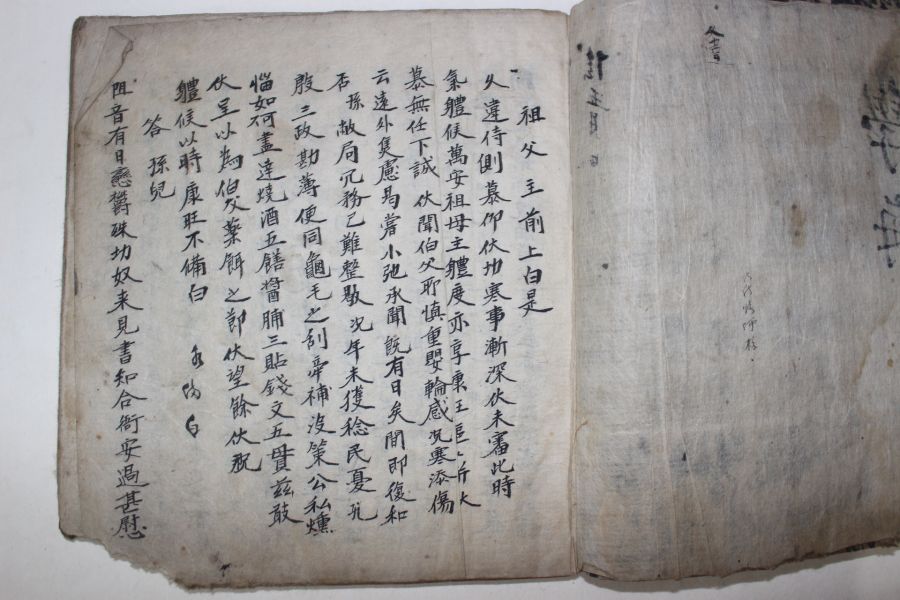 祖父主前上白是
久違侍側慕仰伏切寒事漸深伏未審此時
氣體候萬安祖母主體度亦享康旺區區斤大
慕無任下誠 伏聞伯父耶慎重嬰輪感況寒添傷
云遠外隻慮曷嘗小弛承聞旣有日矣閒卽復和
否 孫敝局冗務已難整敭況年未獲稔民憂
殷三政勘簿便同龜毛之刮帝補沒策公私燻
惱如何盡達燒酒五饍醬脯三貼錢文五貫玆敢
伏呈以爲伯父藥餌之節伏望餘伏祝
體候以時康旺不備白
答 孫兒
阻音有日戀欝殊切奴來見書知合衙安過甚慰